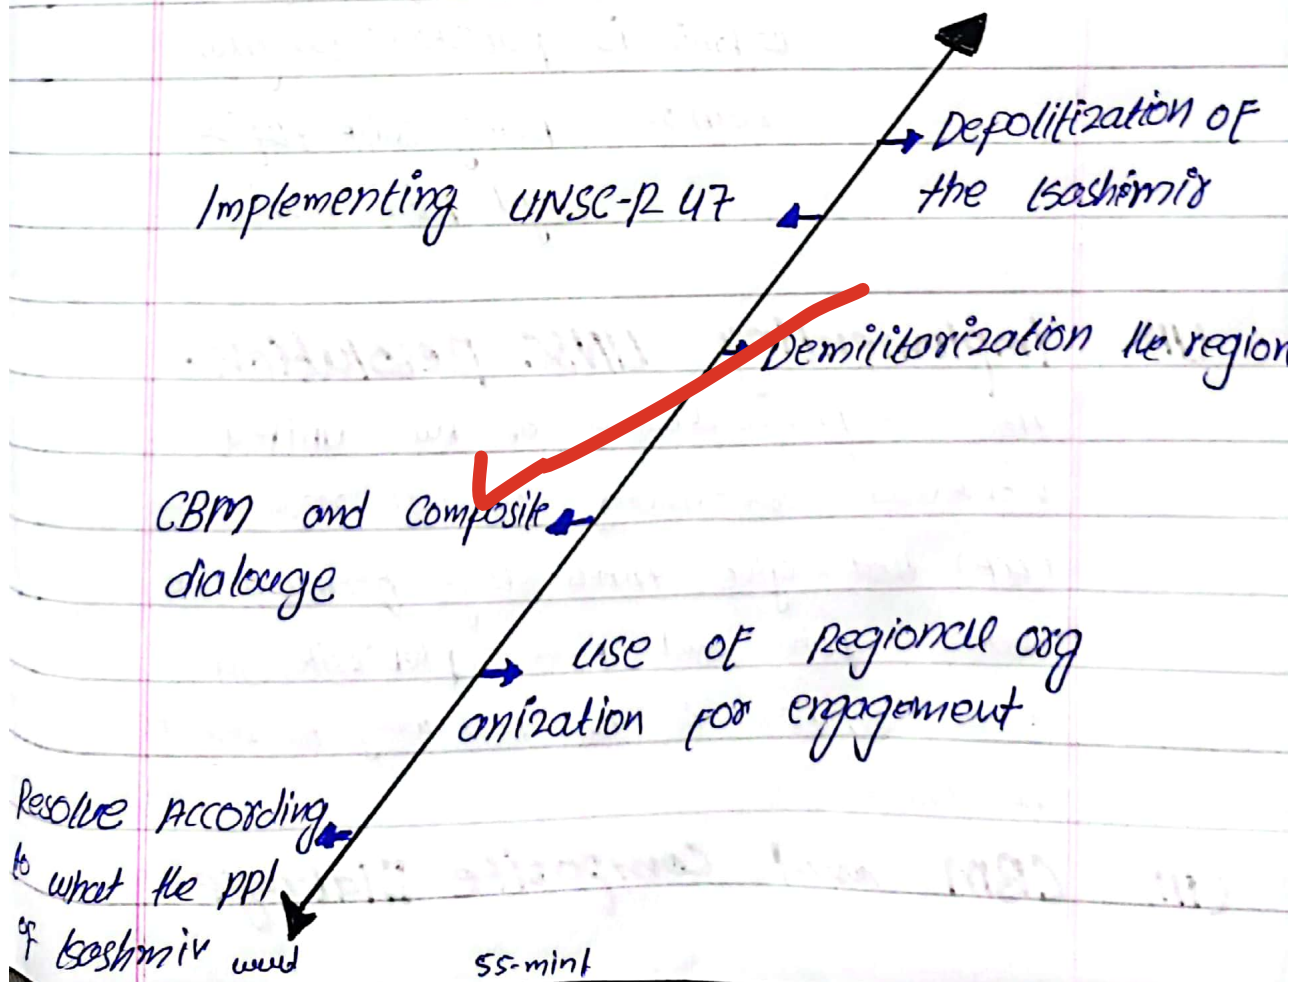 Depolitization of
the Kashimir
Implementing UNSC-R 47
Demilitarization the region
CBM and Composite
dialouge
use of Regional org
anization for engagement
Resolve According
to what the ppl
of Kashmir
55-mint